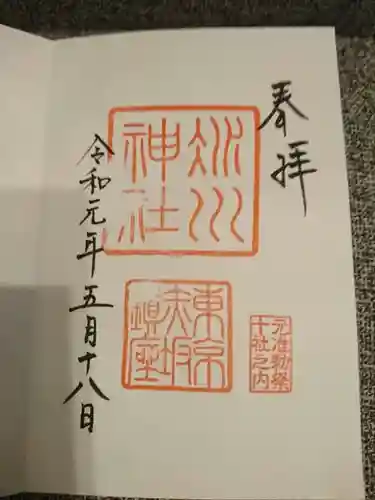 奉拝
氷川
神社
東京
赤坂
鎮座
元准勅祭
十社之内
令和元年五月十八日